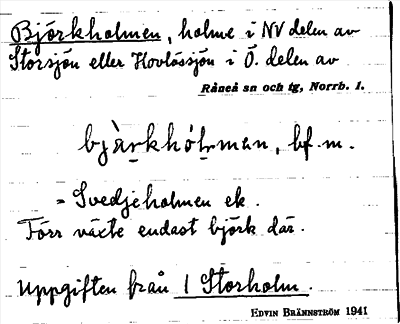 Björkholmen, holme i NV delen av
Storsjön eller Hovlössjön i Ö. delen av
Råneå sn och tg, Norrb. l.
bjàrkhólman, bf. m.
= Svedjeholmen ek.
Förr växte endast björk där.
Uppgiften från 1 Storholm.
EDVIN BRÄNNSTRÖM 1941